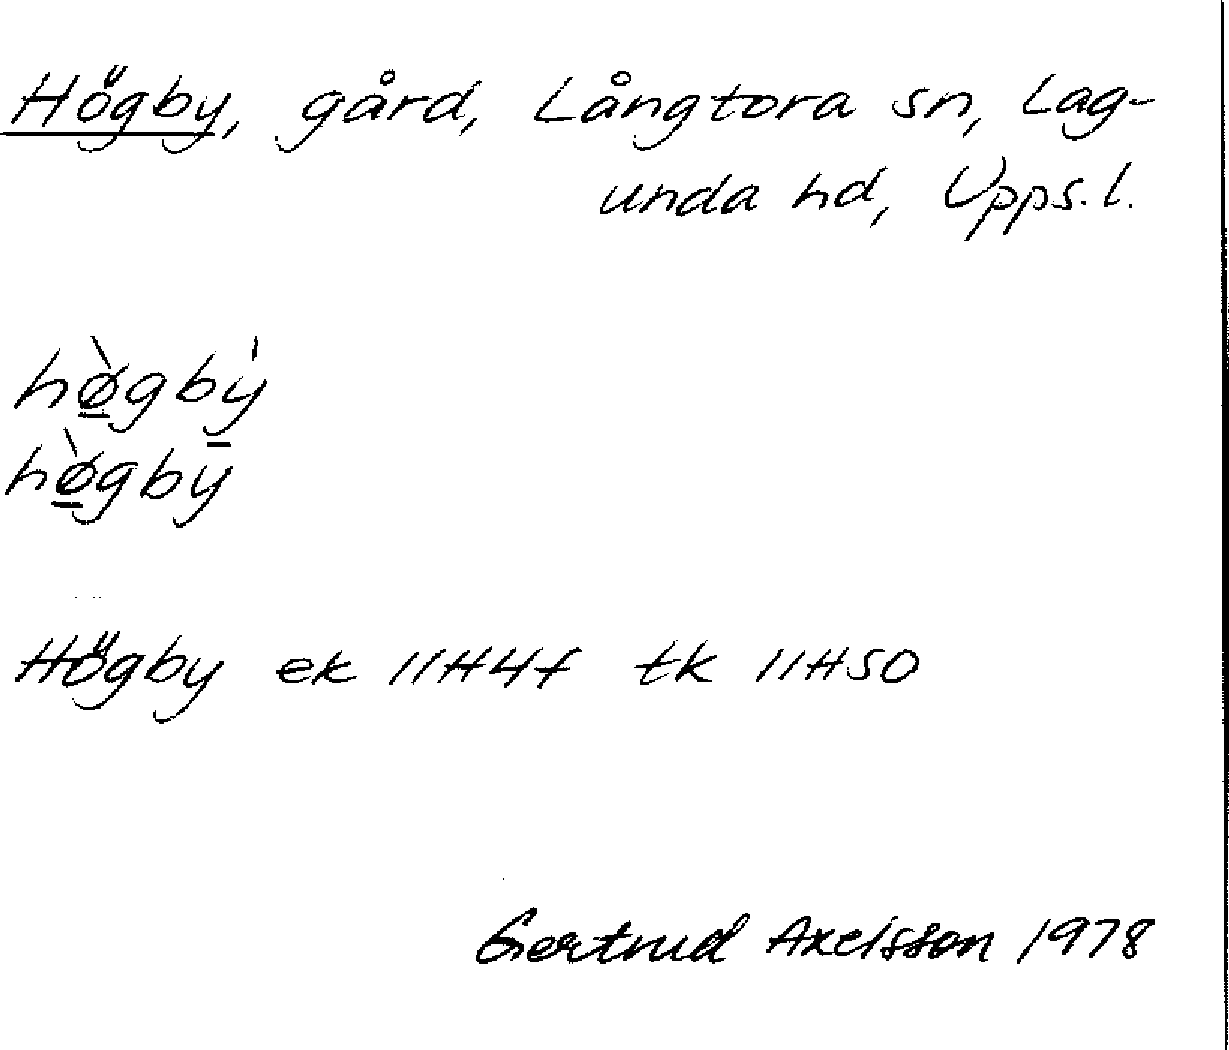 Högby, gård, Långtora sn, Lag-
unda hd, Upps. l.
hø̠̀gbẏ̠
hø̠̀gby
Högby ek 11H4f tk 11H50
Gertrud Axelsson 1978